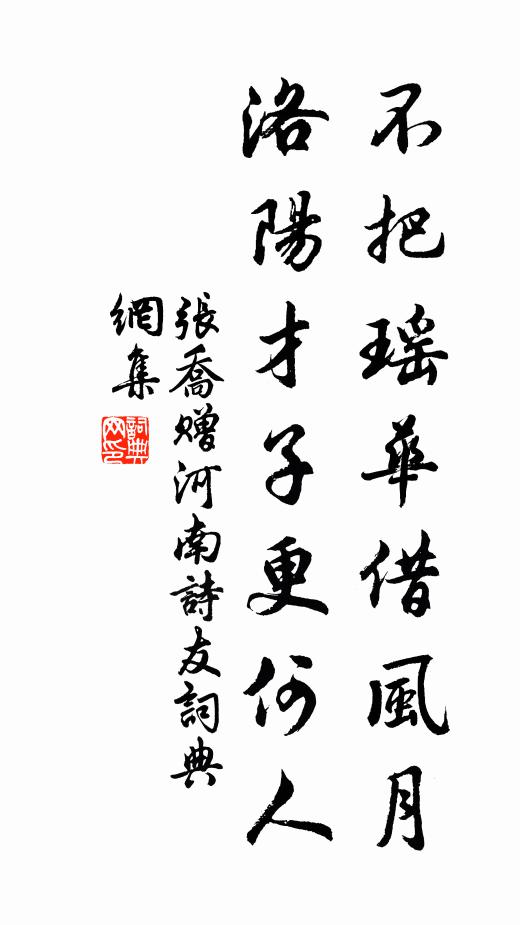 不把瑶華借風月
洛陽才子更何人
張喬贈河南詩友詞典
網集
詞典
网印